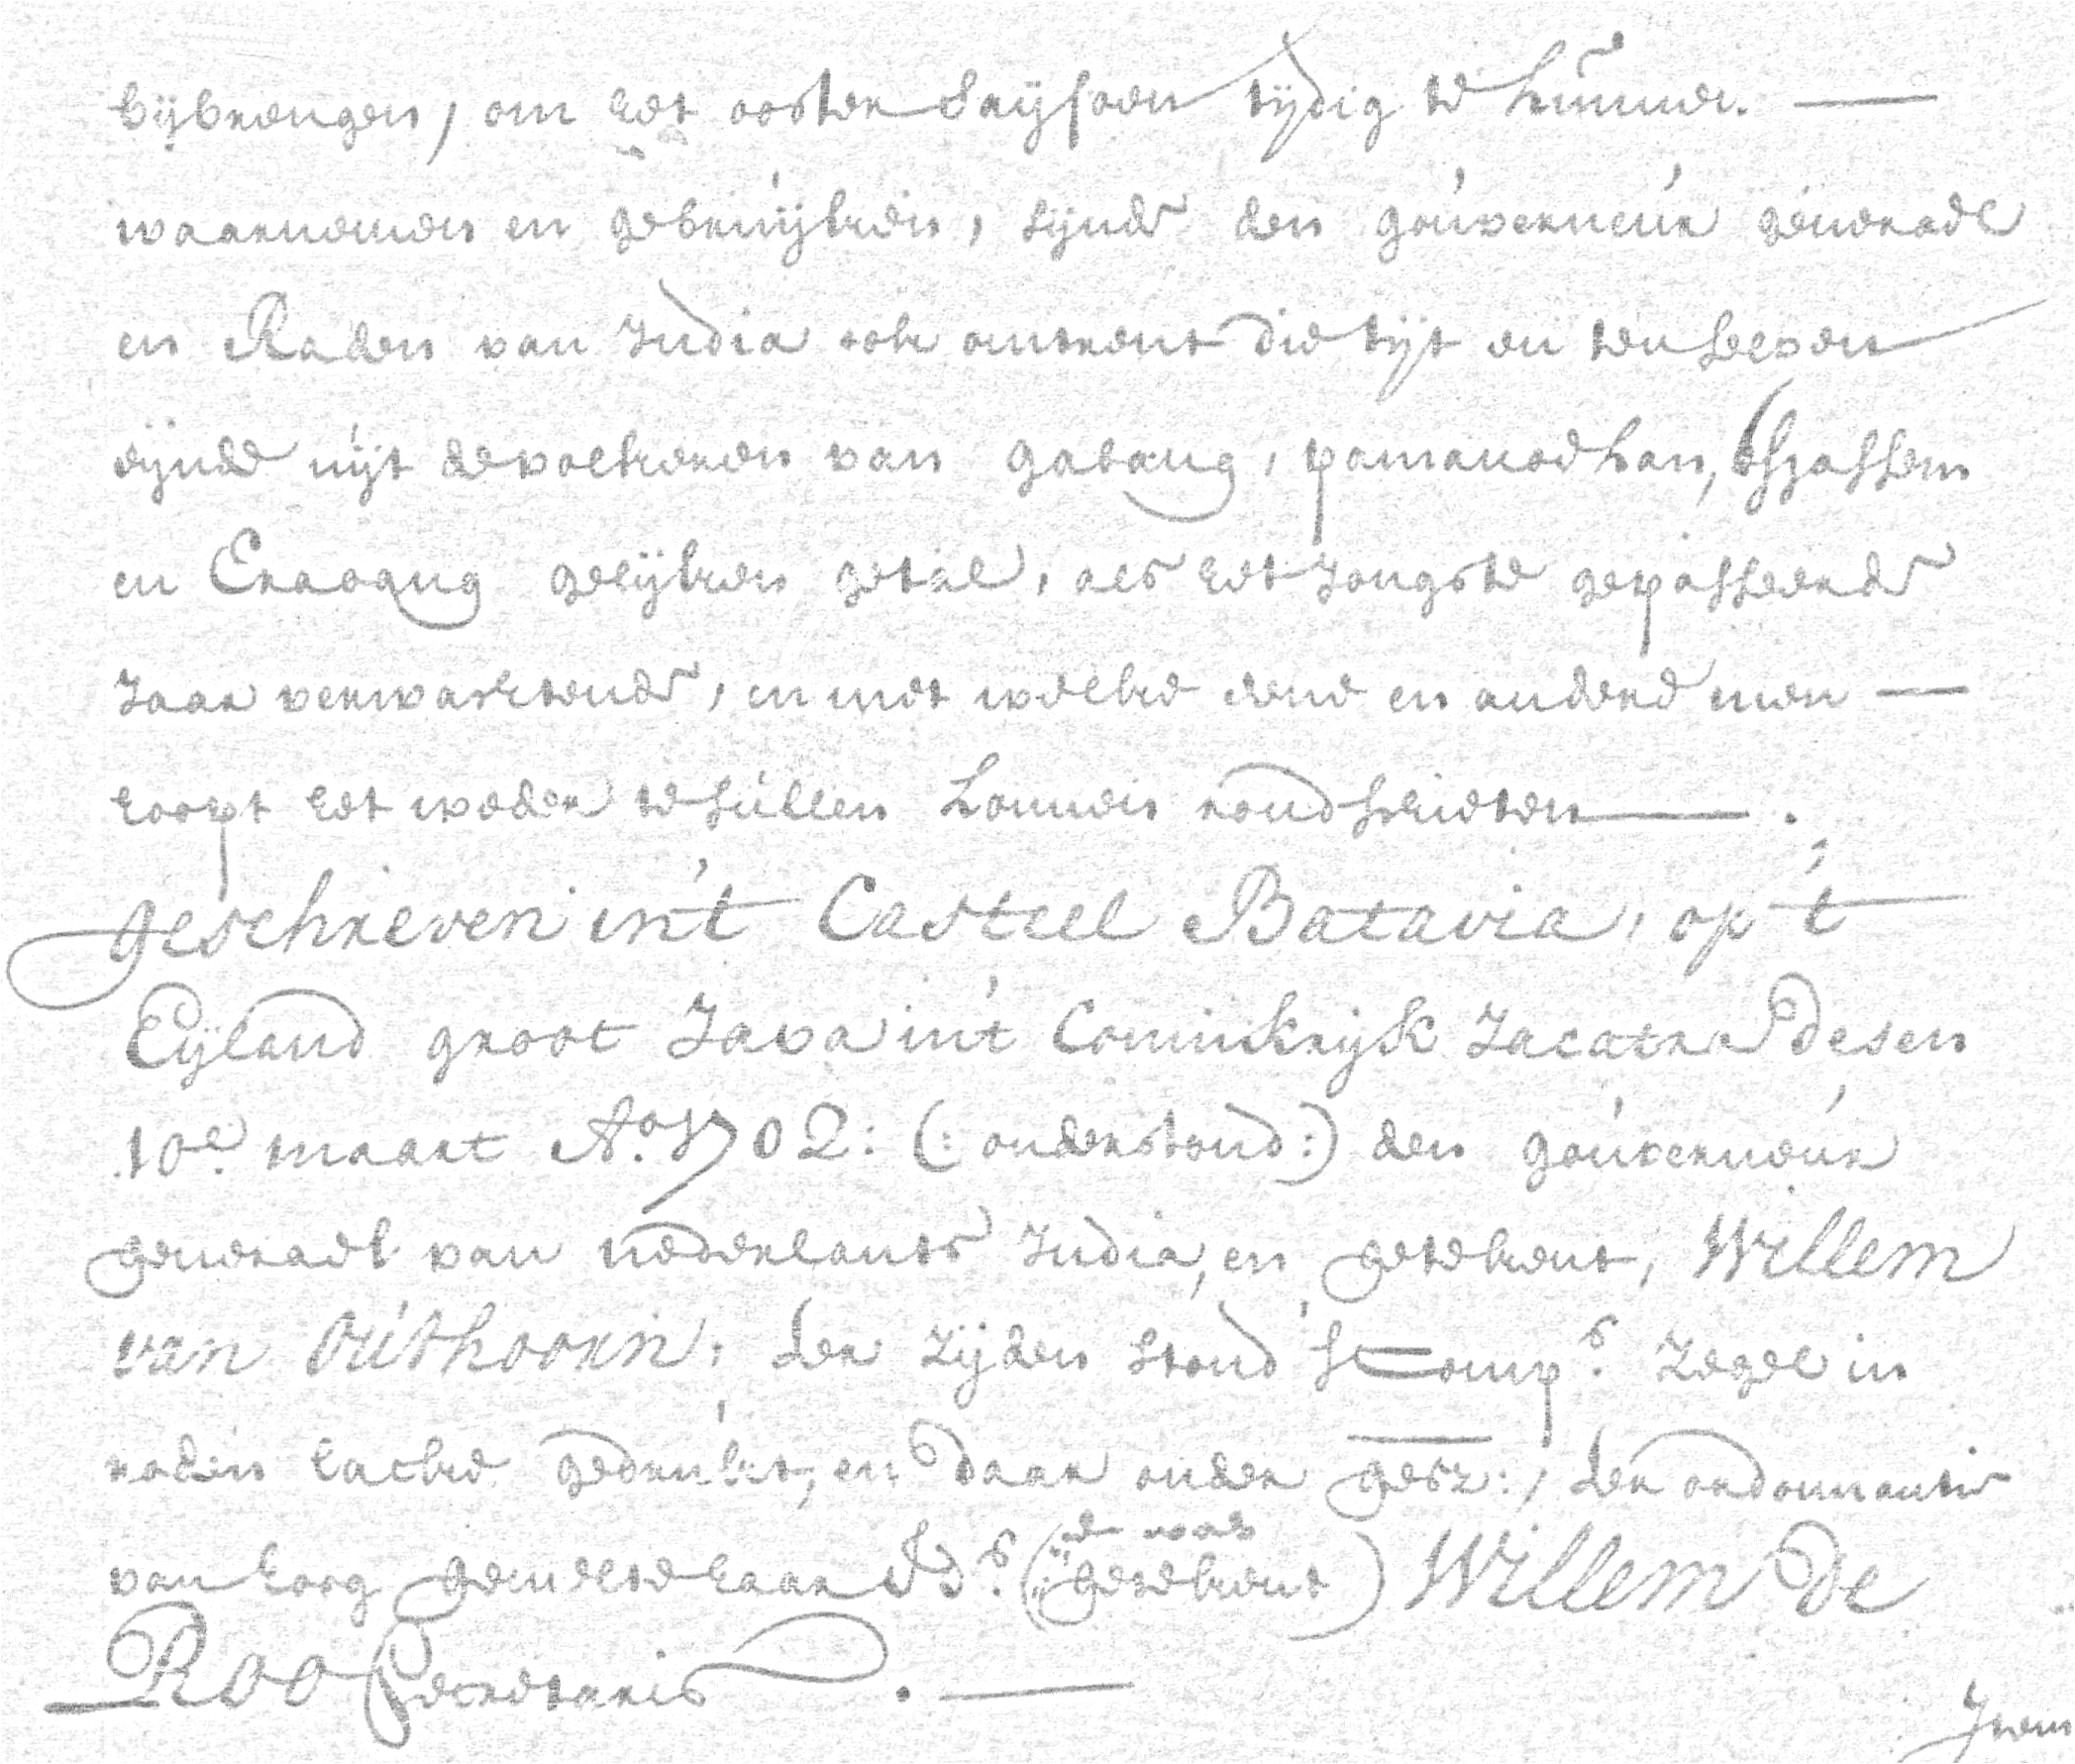 bijbrengen, om het ooster saijsoen tijdig te kunnen. —
waarnemen en gebruijken, sijnde den gouverneur generael
en Raden van India ook omtrent die tijt en ten selven
eijnde uijt de volkeren van gabang, pamanoekan, Tsjassem
en Craoang gelijken getal, als het jongste gepasseerde
Jaar verwachtende, en met welke eene en andere men —
hoopt het weder te sullen konnen rondschieten — .
geschreven in't Casteel Batavia, op 't
Eijland groot Java in't Coninkrijk Jacatra desen
10e. maart Ao. 1702: (: onderstond:) den gouverneur
generael van nederlants India, en getekent, Willem
van outhoorn; ter zijden stond 's Comps. Zegel in
roden lacke gedrukt, en daar onder gesz:, ter ordonnantie
van hoog gemelte haar Eds. (:en was getekent) Willem de
Roo Secretaris . —
Item